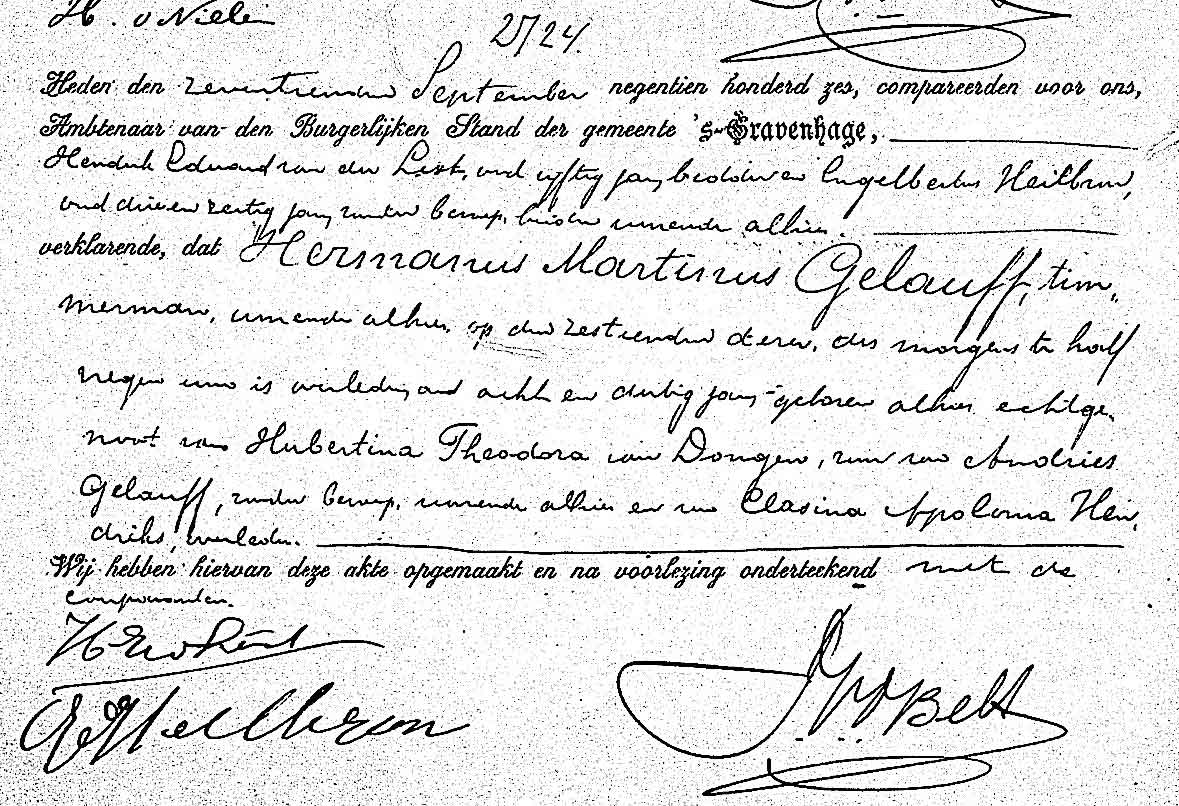 H. v Nielen
2724.
Heden den zeventienden September negentien honderd zes, compareerden voor ons,
Ambtenaar van den Burgerlijken Stand der gemeente 's-Gravenhage,
Hendrik Eduard van der oud vijftig jaar, bidder en Engelbertus Heilbron,
oud drie en zestig jaar, zonder beroep, beiden wonende alhier.
verklarende, dat Hermanus Martinus Gelauff, tim,
merman, wonende alhier, op den zestienden dezer, des morgens te half
negen ure is overleden, oud acht en dertig jaar, geboren alhier, echtge,
noot van Hubertina Theodora van Dongen, zoon van Andries
Gelauff, zonder beroep, wonende alhier en van Clasina Apolonia Hen,
driks, overleden.
Wij hebben hiervan deze akte opgemaakt en na voorlezing onderteekend met de
comparanten.